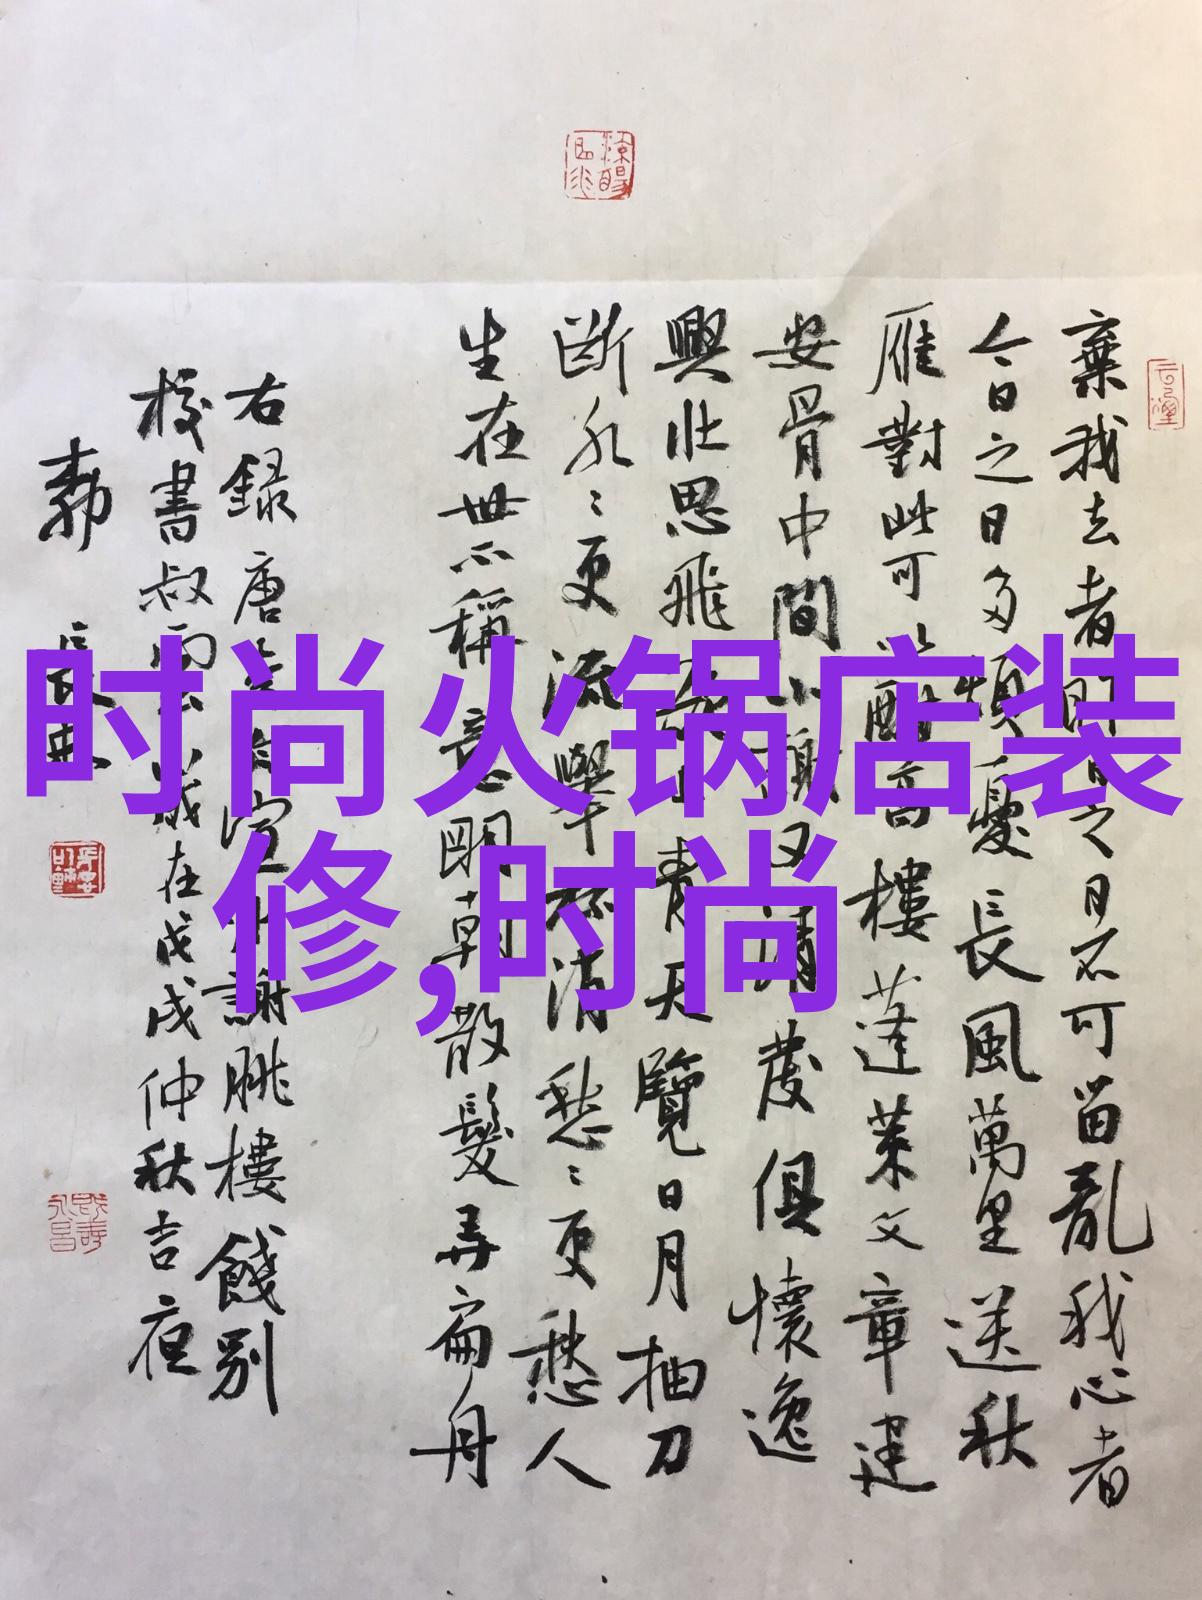 时尚火锅店装
修,时尚
棄我去者昨日之日不可留亂我心者
今日之日多煩憂長風萬里送秋
雁對此可以酣高樓蓬萊文章建
安骨中間小謝又清發俱懷逸
興壯思飛欲上青天覽日月抽刀
斷水〻更流舉杯消愁〻更愁人
生在世不稱意明朝散髮弄扁舟
右録唐李白宣州謝朓樓餞別
校書叔雲歲在戊戌仲秋吉夜